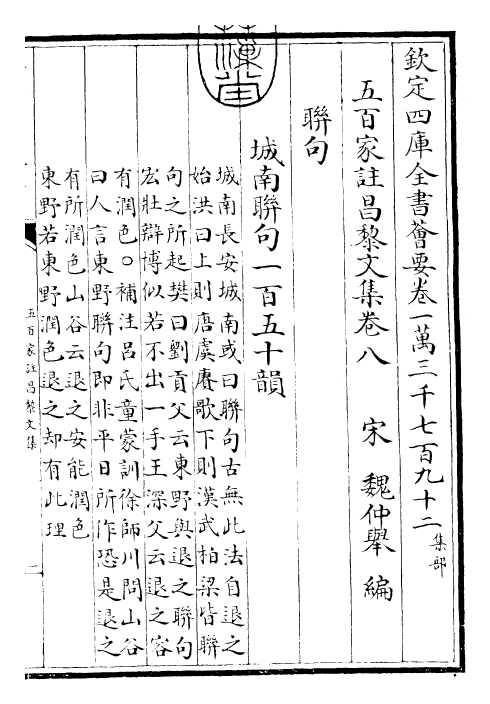 欽定四庫全書薈要卷一萬三千七百九十二 集部
五百家註昌黎文集卷八 宋 魏仲舉 編
聯句
城南聯句一百五十韻
城南長安城南或曰聯句古無此法自退之
始洪曰上則唐虞賡歌下則漢武柏梁皆聯
句之所起樊曰劉貢父云東野與退之聯句
宏壯辯博似若不出一手王深父云退之容
有潤色○補注呂氏童蒙訓徐師川問山谷
曰人言東野聯句即非平日所作恐是退之
有所潤色山谷云退之安能潤色
東野若東野潤色退之却有此理
五百家註昌黎文集